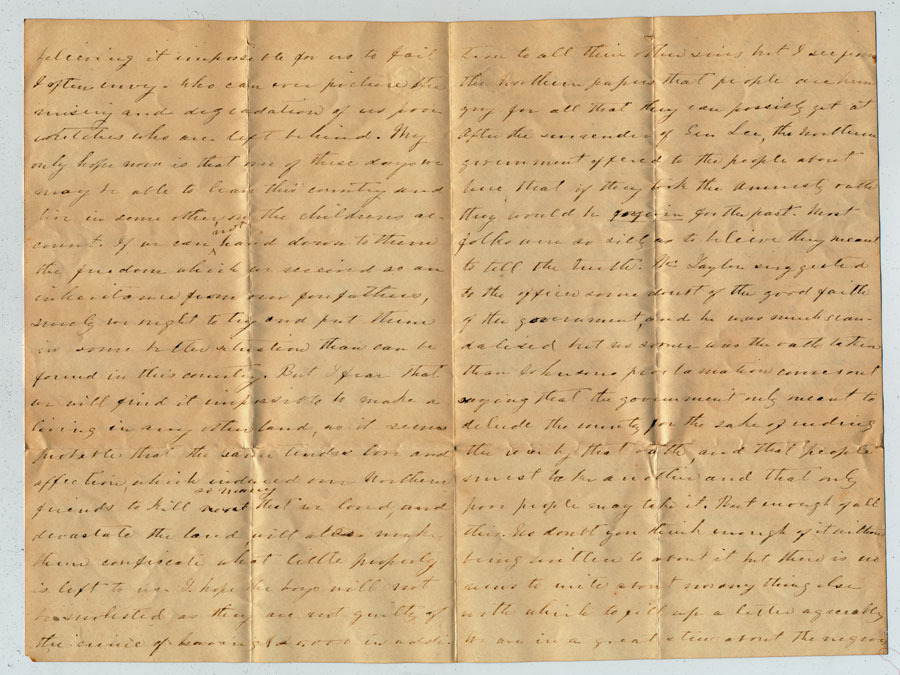 believing it impossible for us to fail
I often envy. Who can ever picture the
misery and degradation of us poor
wretches who are left behind. My
only hope now is that one of these days we
may be able to leave this country and
live in some other on the childrens ac-
count. If we can not hand down to them
the freedom which we received as an
inheritance from our forefathers,
surely we ought to try and put them
in some better situation than can be
found in this country. But I fear that
we will find it impossible to make a
living in any other land, as it seems
probable that the same tender love and
affection, which induced our Northern
friends to kill so many that we loved, and
devastate the land, will also make
them confiscate what little property
is left to us. I hope the boys will not
be molested as they are not guilty of
the crime of having in addi-
tion to all their other sins but I see from
the Northern papers that people are hun-
gry for all that they can possibly get at
After the surrender of Gen Lee, the northern
government offered to the people about
here that if they took the amnesty oath
they would be forgiven for the past. Most
folks were so silly as to believe they meant
to tell the truth. Mr Taylor suggested
to the officer some doubt of the good faith
of the government, and he was much scan-
dalised but no sooner was the oath taken
than Johnsons proclamation comes out
saying that the government only meant to
delude the country for the sake of ending
the war by that oath and that people
must take another and that only
poor people may take it. But enough of all
this. No doubt you think enough of it without
being written to about it but there is no
news to write about nor any thing else
with which to fill up a letter agreeably
We are in a great stew about the negroes